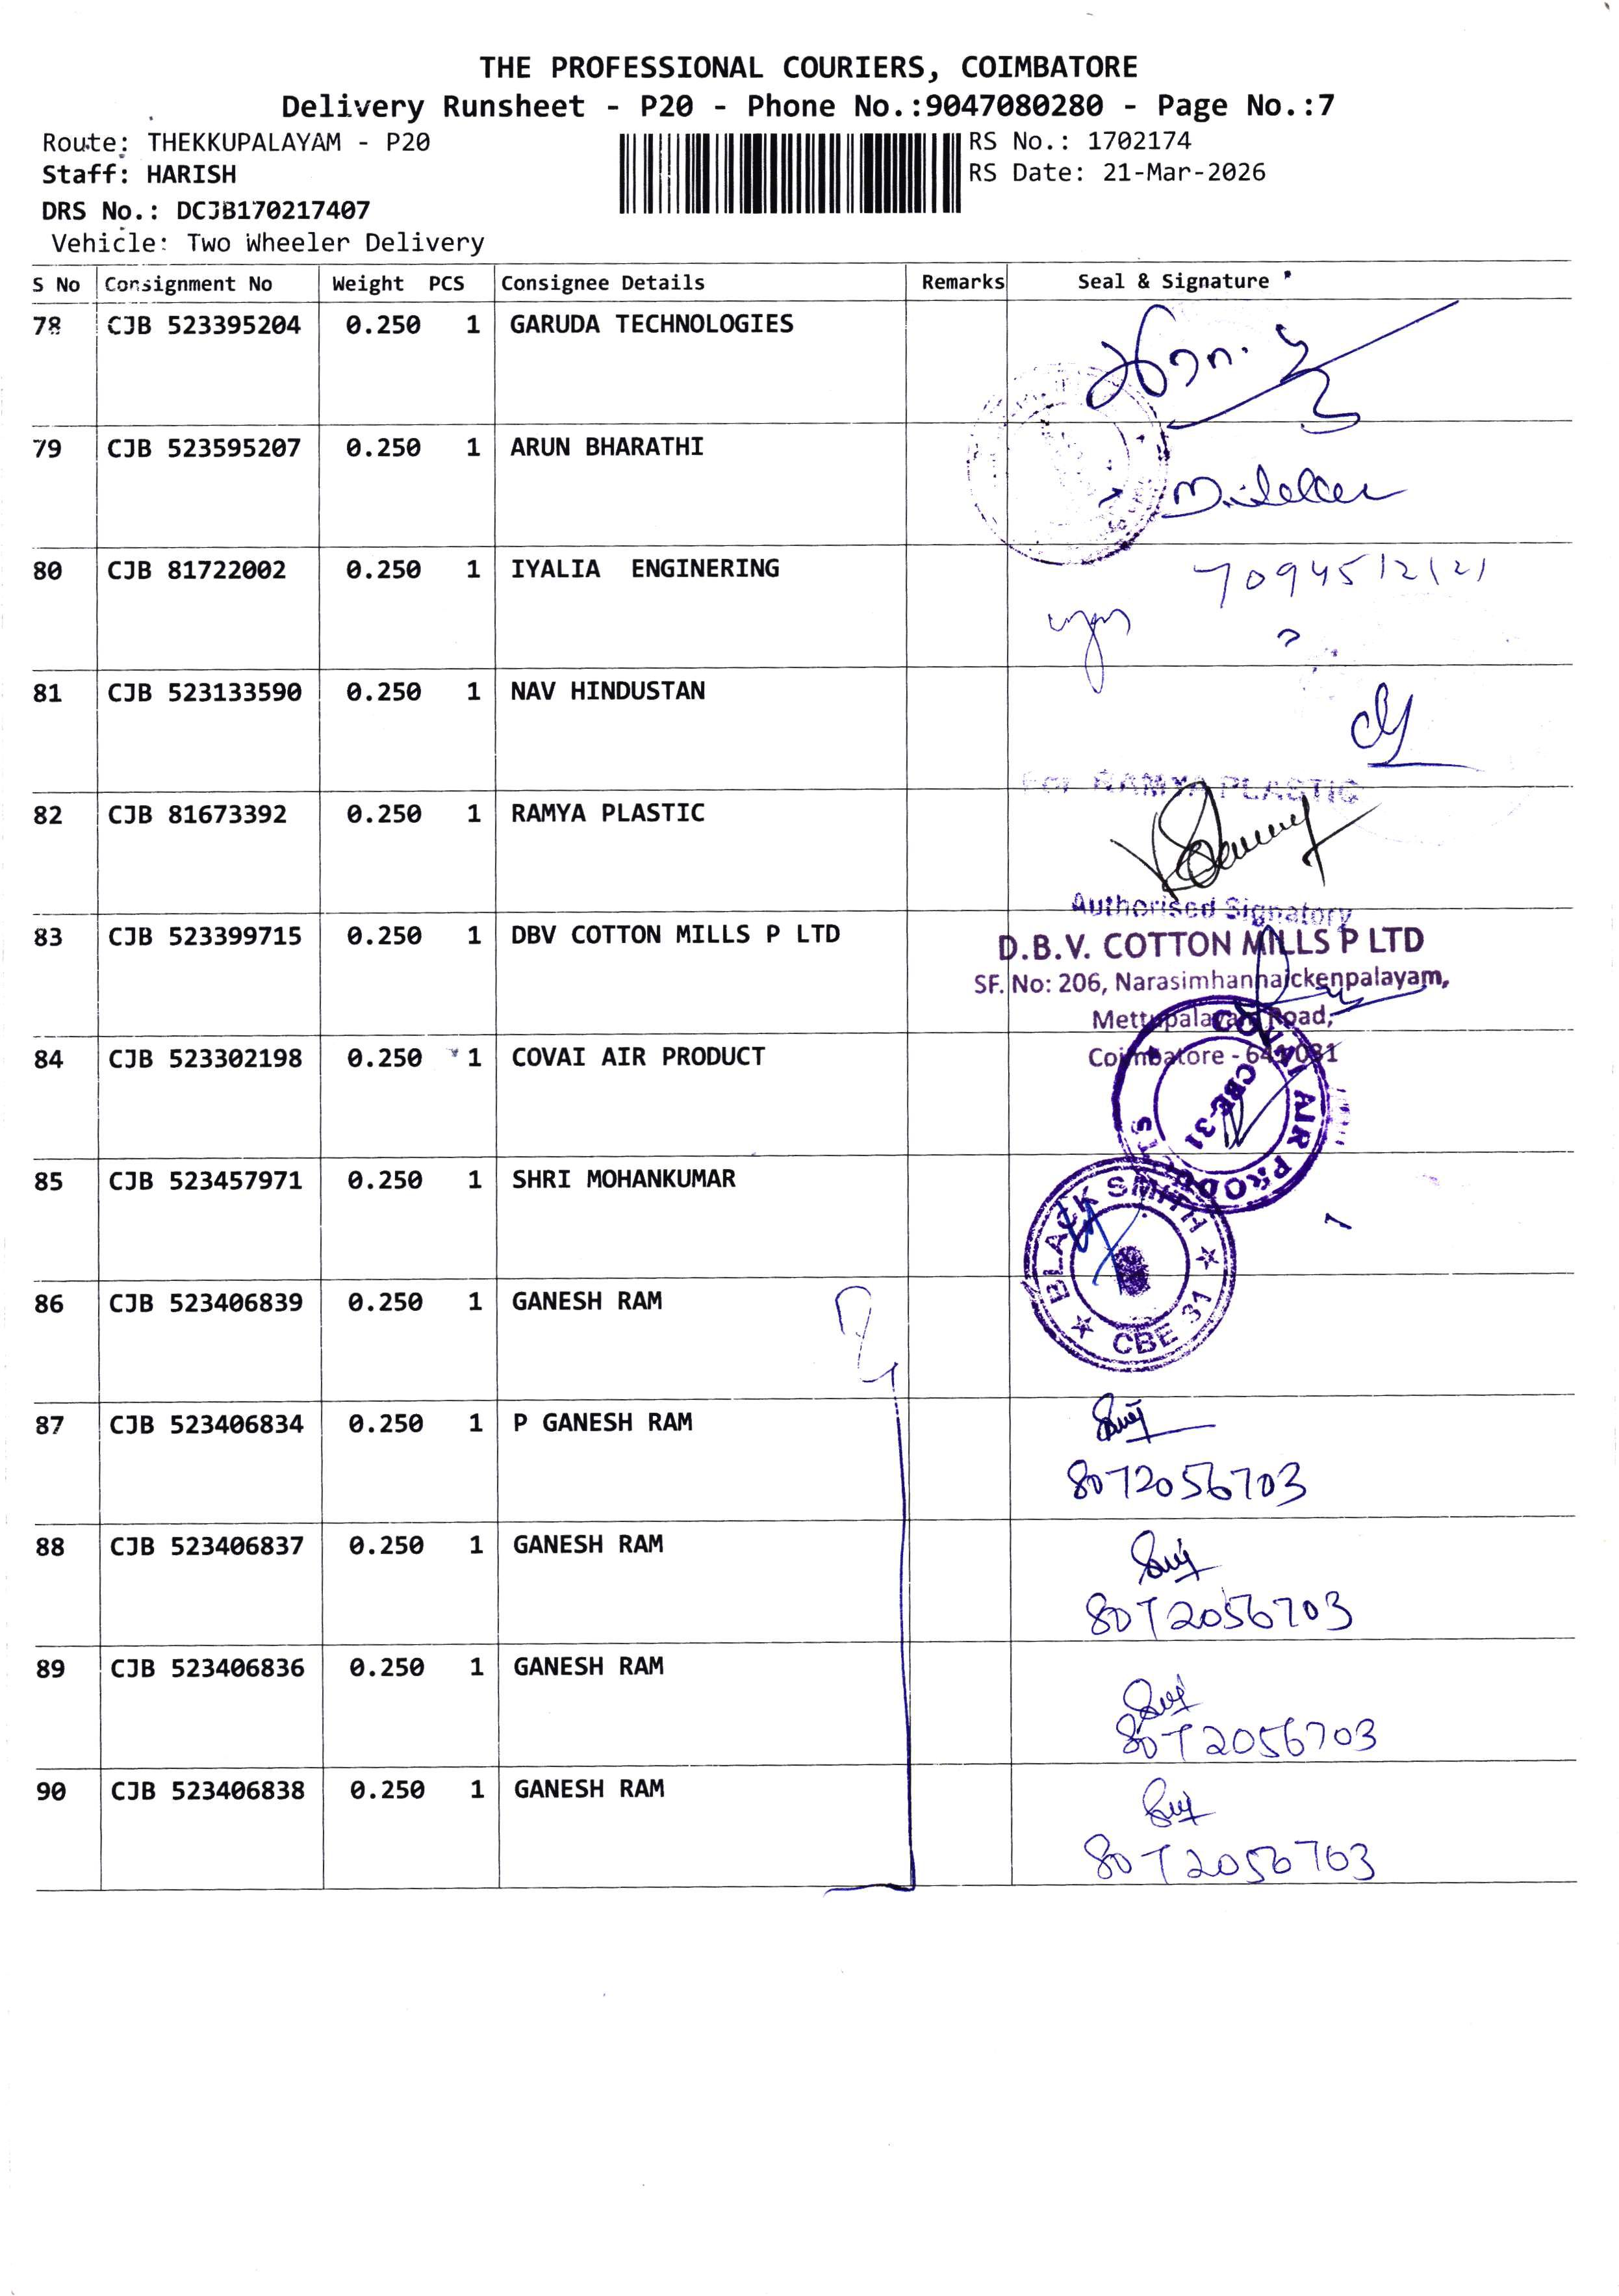 THE PROFESSIONAL COURIERS, COIMBATORE
Delivery Runsheet - P20 - Phone No.:9047080280 - Page No.:7
Route: THEKKUPALAYAM - P20
RS No.: 1702174
Staff: HARISH
RS Date: 21-Mar-2026
DRS No.: DCJB170217407
Vehicle: Two Wheeler Delivery
S No Consignment No Weight PCS Consignee Details Remarks Seal & Signature
78 CJB 523395204 0.250 1 GARUDA TECHNOLOGIES
79 CJB 523595207 0.250 1 ARUN BHARATHI
80 CJB 81722002 0.250 1 IYALIA ENGINERING
7094512121
81 CJB 523133590 0.250 1 NAV HINDUSTAN
For RAMYA PLASTIC
82 CJB 81673392 0.250 1 RAMYA PLASTIC
Authorised Signatory
83 CJB 523399715 0.250 1 DBV COTTON MILLS P LTD
D.B.V. COTTON MILLS P LTD
SF. No: 206, Narasimhannaickenpalayam,
Mettupalayam Road,
Coimbatore - 641 031
84 CJB 523302198 0.250 1 COVAI AIR PRODUCT
COVAI AIR PRODUCTS
CBE-31
85 CJB 523457971 0.250 1 SHRI MOHANKUMAR
BLACK SMITH
CBE 31
86 CJB 523406839 0.250 1 GANESH RAM
87 CJB 523406834 0.250 1 P GANESH RAM
8072056703
88 CJB 523406837 0.250 1 GANESH RAM
8072056703
89 CJB 523406836 0.250 1 GANESH RAM
8072056703
90 CJB 523406838 0.250 1 GANESH RAM
8072056703